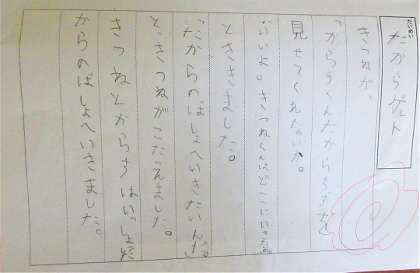 だいめい
たからゲット
きつねが、
「からすくんたからちずを
見せてくれないか。
「いいよ。きつねくんはどこにいくの。
とききました。
「たからのばしょへいきたいんだ。
と、きつねがこたえました。
きつねとからすはいっしょにた
からのばしょへいきました。